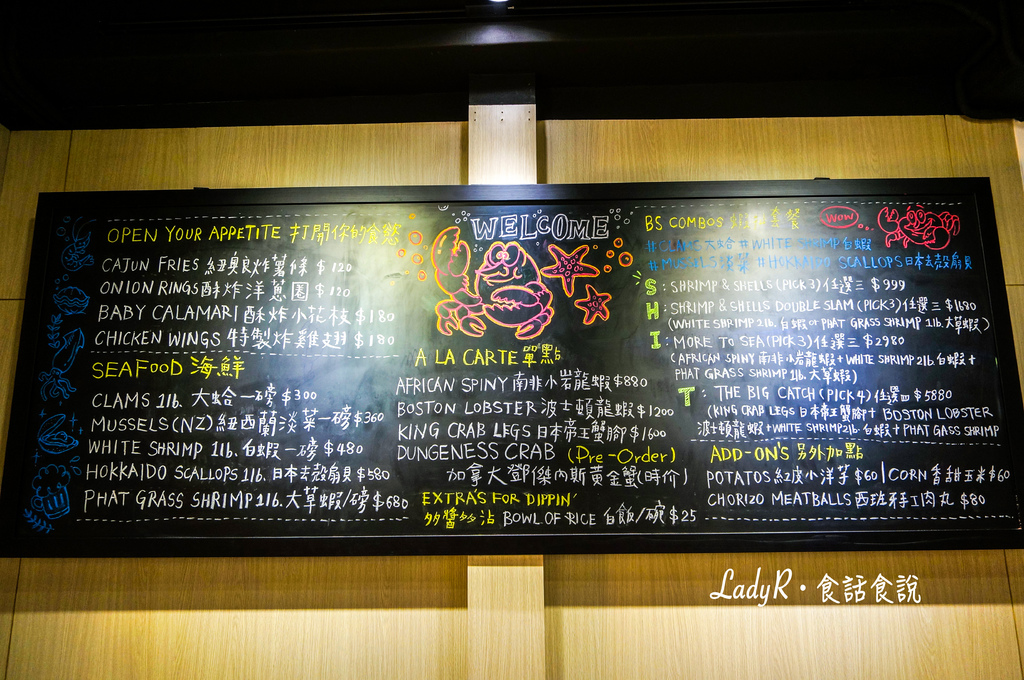 OPEN YOUR APPETITE 打開你的食慾
CAJUN FRIES 紐奧良炸薯條 $120
ONION RINGS 酥炸洋蔥圈 $120
BABY CALAMARI 酥炸小花枝 $180
CHICKEN WINGS 特製炸雞翅 $180
SEAFOOD 海鮮
CLAMS 1lb. 大蛤 一磅 $300
MUSSELS(NZ) 紐西蘭淡菜一磅 $360
WHITE SHRIMP 1lb. 白蝦一磅 $480
HOKKAIDO SCALLOPS 1lb. 日本去殼扇貝 $580
PHAT GRASS SHRIMP 1lb. 大草蝦/磅 $680
WELCOME
A LA CARTE 單點
AFRICAN SPINY 南非小岩龍蝦 $880
BOSTON LOBSTER 波士頓龍蝦 $1200
KING CRAB LEGS 日本帝王蟹腳 $1600
DUNGENESS CRAB (Pre-Order)
加拿大鄧傑內斯黃金蟹(時價)
EXTRA'S FOR DIPPIN'
多醬多沾 BOWL OF RICE 白飯/碗 $25
BS COMBOS 套餐
WOW
#CLAMS 大蛤 #WHITE SHRIMP 白蝦
#MUSSELS 淡菜 #HOKKAIDO SCALLOPS 日本去殼扇貝
S : SHRIMP & SHELLS (PICK 3) 任選三 $999
H : SHRIMP & SHELLS DOUBLE SLAM (PICK3) 任選三 $1680
(WHITE SHRIMP 2lb. 白蝦 or PHAT GRASS SHRIMP 1lb. 大草蝦)
I : MORE TO SEA (PICK 3) 任選三 $2980
(AFRICAN SPINY 南非小岩龍蝦 + WHITE SHRIMP 2lb. 白蝦 +
PHAT GRASS SHRIMP 1lb. 大草蝦)
T : THE BIG CATCH (PICK 4) 任選四 $5880
(KING CRAB LEGS 日本帝王蟹腳 + BOSTON LOBSTER
波士頓龍蝦 + WHITE SHRIMP 2lb. 白蝦 + PHAT GASS SHRIMP
ADD-ON'S 另外加點
POTATOS 紅皮小洋芋 $60 / CORN 香甜玉米 $60
CHORIZO MEATBALLS 西班牙手工肉丸 $80
LadyR・食話食說